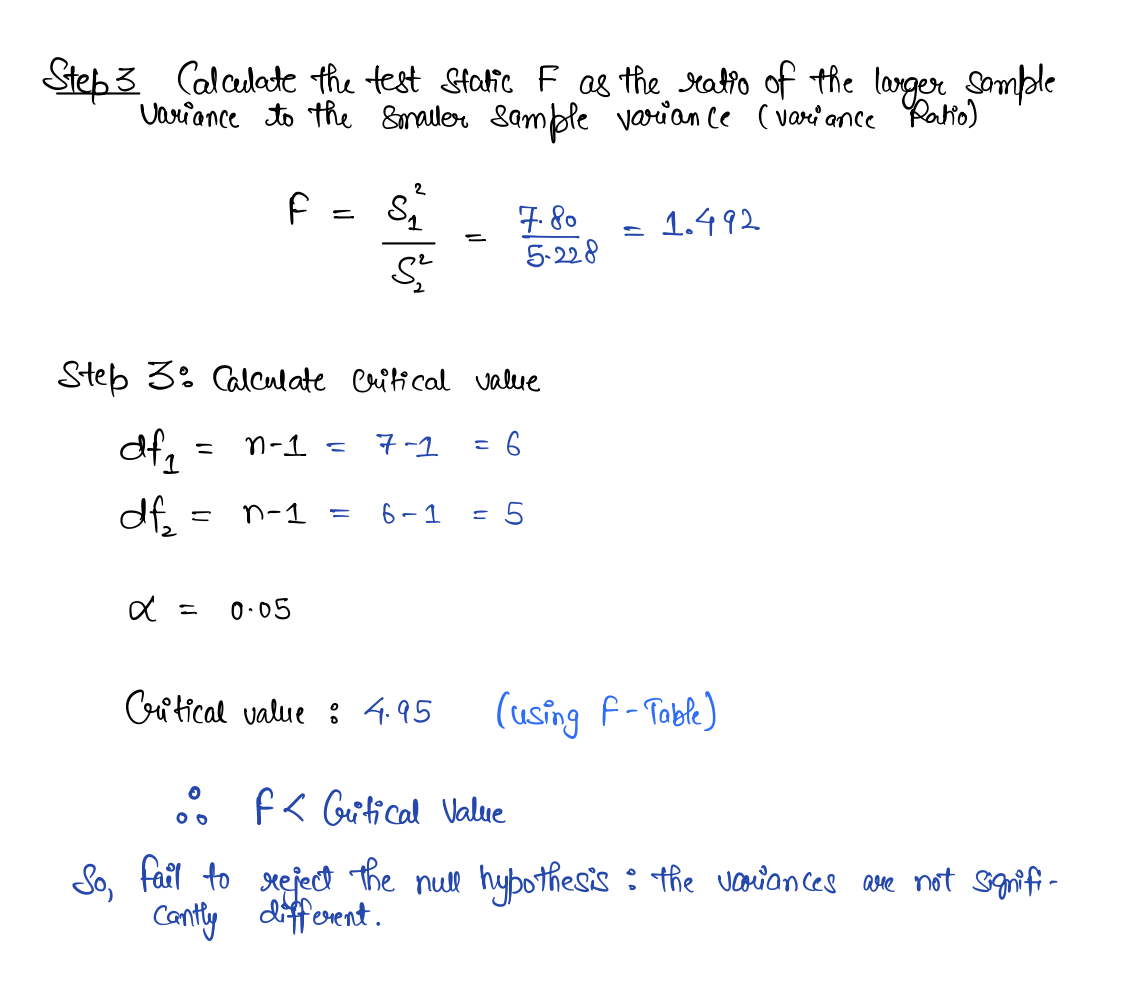 Step 3 Calculate the test static F as the ratio of the larger sample
variance to the smaller sample variance (variance Ratio)
F = S₁² / S₂² = 7.80 / 5.228 = 1.492
Step 3: Calculate critical value
df₁ = n-1 = 7-1 = 6
df₂ = n-1 = 6-1 = 5
α = 0.05
Critical value : 4.95 (using F-Table)
∴ F < Critical Value
So, fail to reject the null hypothesis : the variances are not signifi-
cantly different.